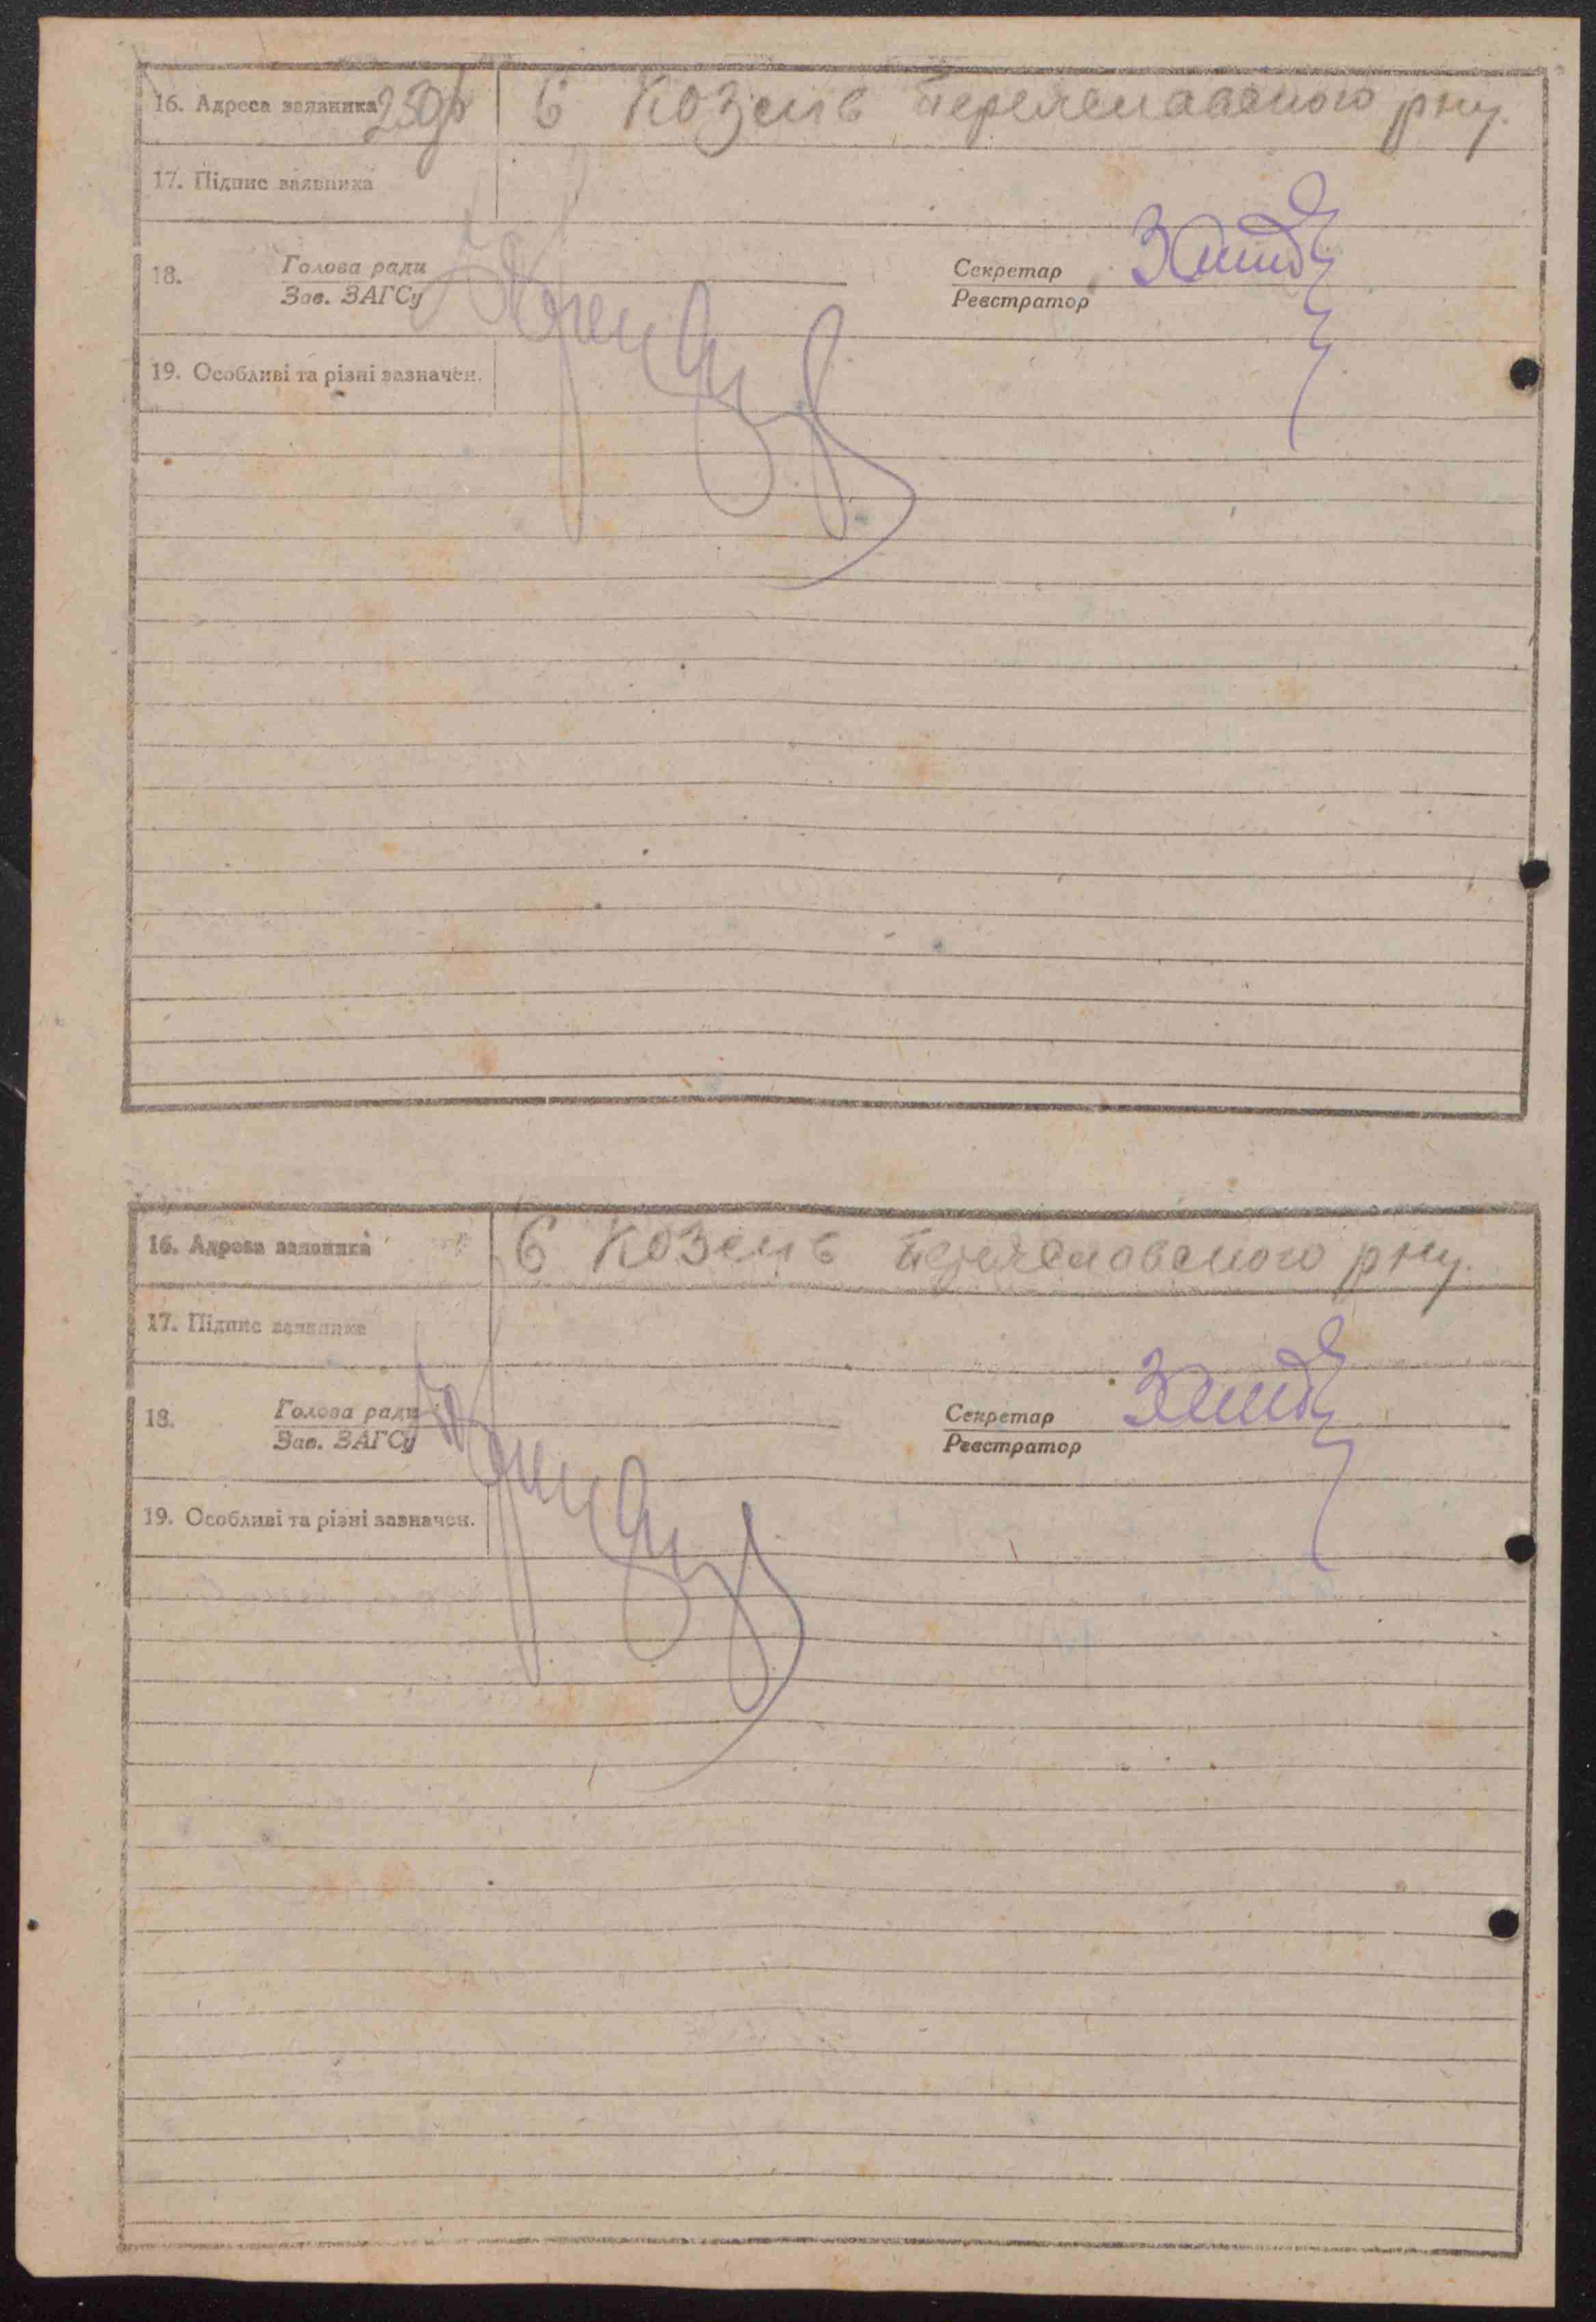 16. Адреса заявника 250б С Козлів Переяславского рну.
17. Підпис заявника
18. Голова ради Секретар
Зав. ЗАГСу Реєстратор
19. Особливі та різні зазначен.
16. Адреса заявника С Козлів Переяславского рну.
17. Підпис заявника
18. Голова ради Секретар
Зав. ЗАГСу Реєстратор
19. Особливі та різні зазначен.